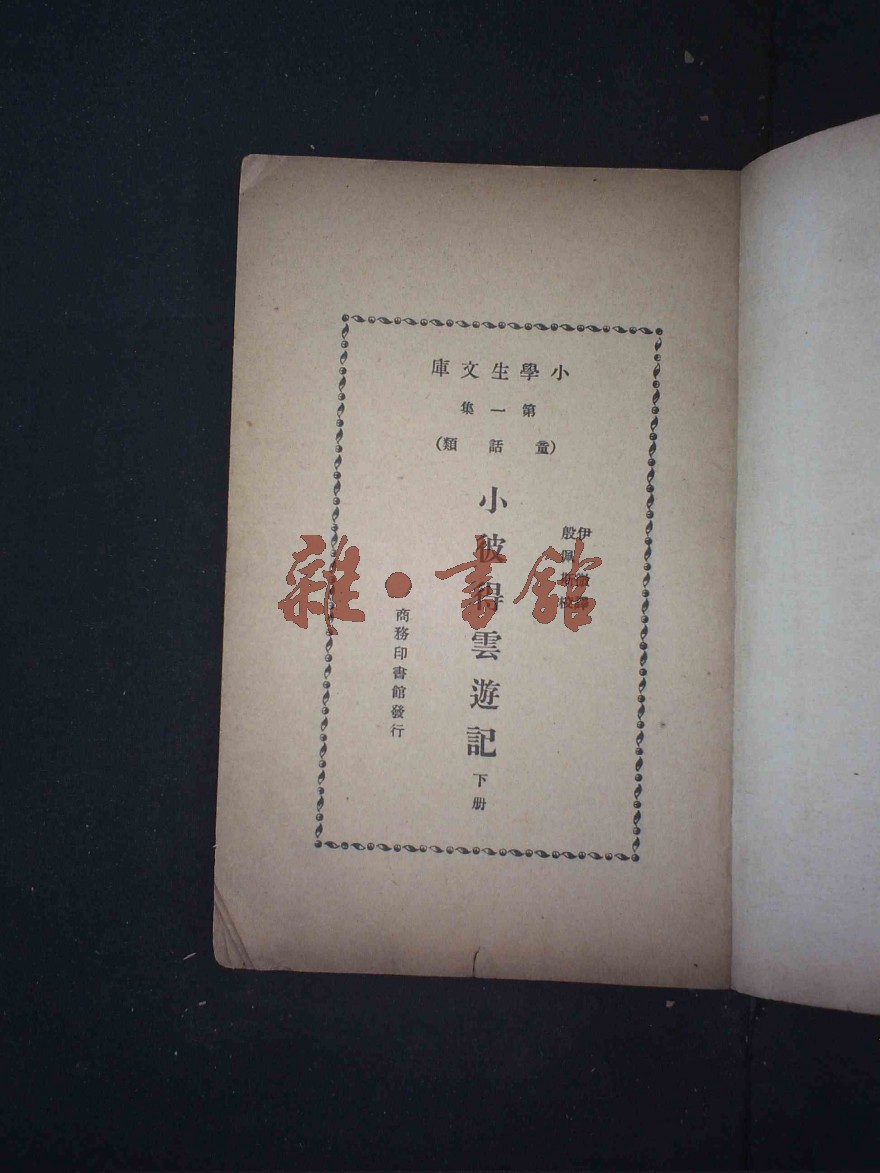 小學生文庫
第一集
(童話類)
伊微譯
殷佩斯校
小彼得雲遊記 下册
商務印書館發行
雜·書館